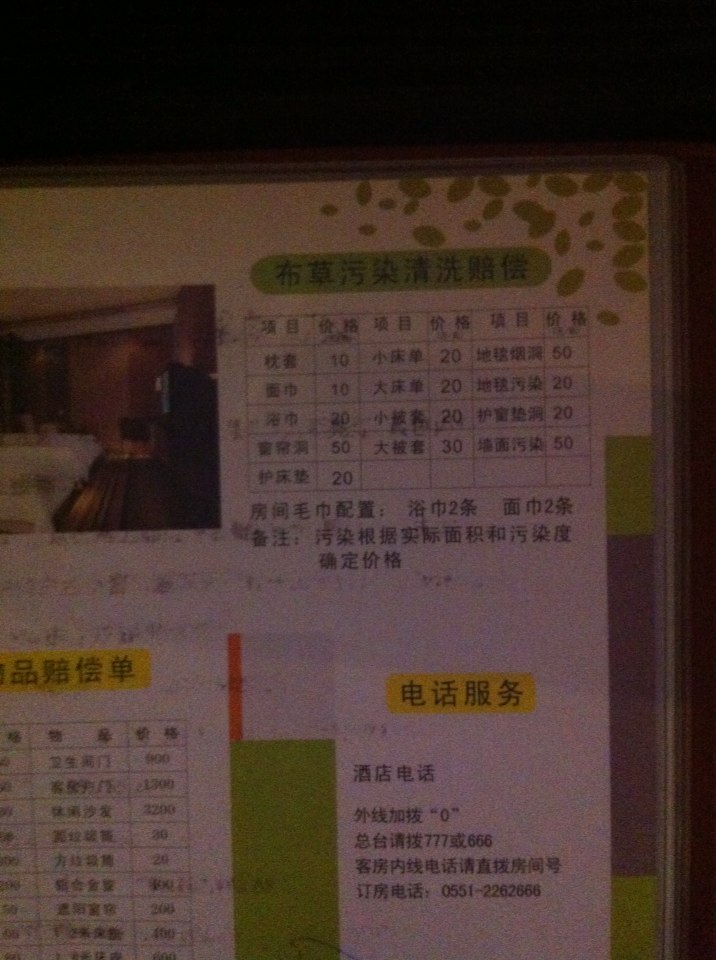 布草污染清洗赔偿
项目 价格 项目 价格 项目 价格
枕套 10 小床单 20 地毯烟洞 50
面巾 10 大床单 20 地毯污染 20
浴巾 20 小被套 20 护窗垫洞 20
窗帘洞 50 大被套 30 墙面污染 50
护床垫 20
房间毛巾配置: 浴巾2条 面巾2条
备注: 污染根据实际面积和污染度
确定价格
品赔偿单
格 物品 价格
卫生间门 900
客房房门 1300
休闲沙发 3200
30
20
铝合金窗
50 遮阳窗帘 200
400
600
电话服务
酒店电话
外线加拨“0”
总台请拨777或666
客房内线电话请直拨房间号
订房电话: 0551-2262666